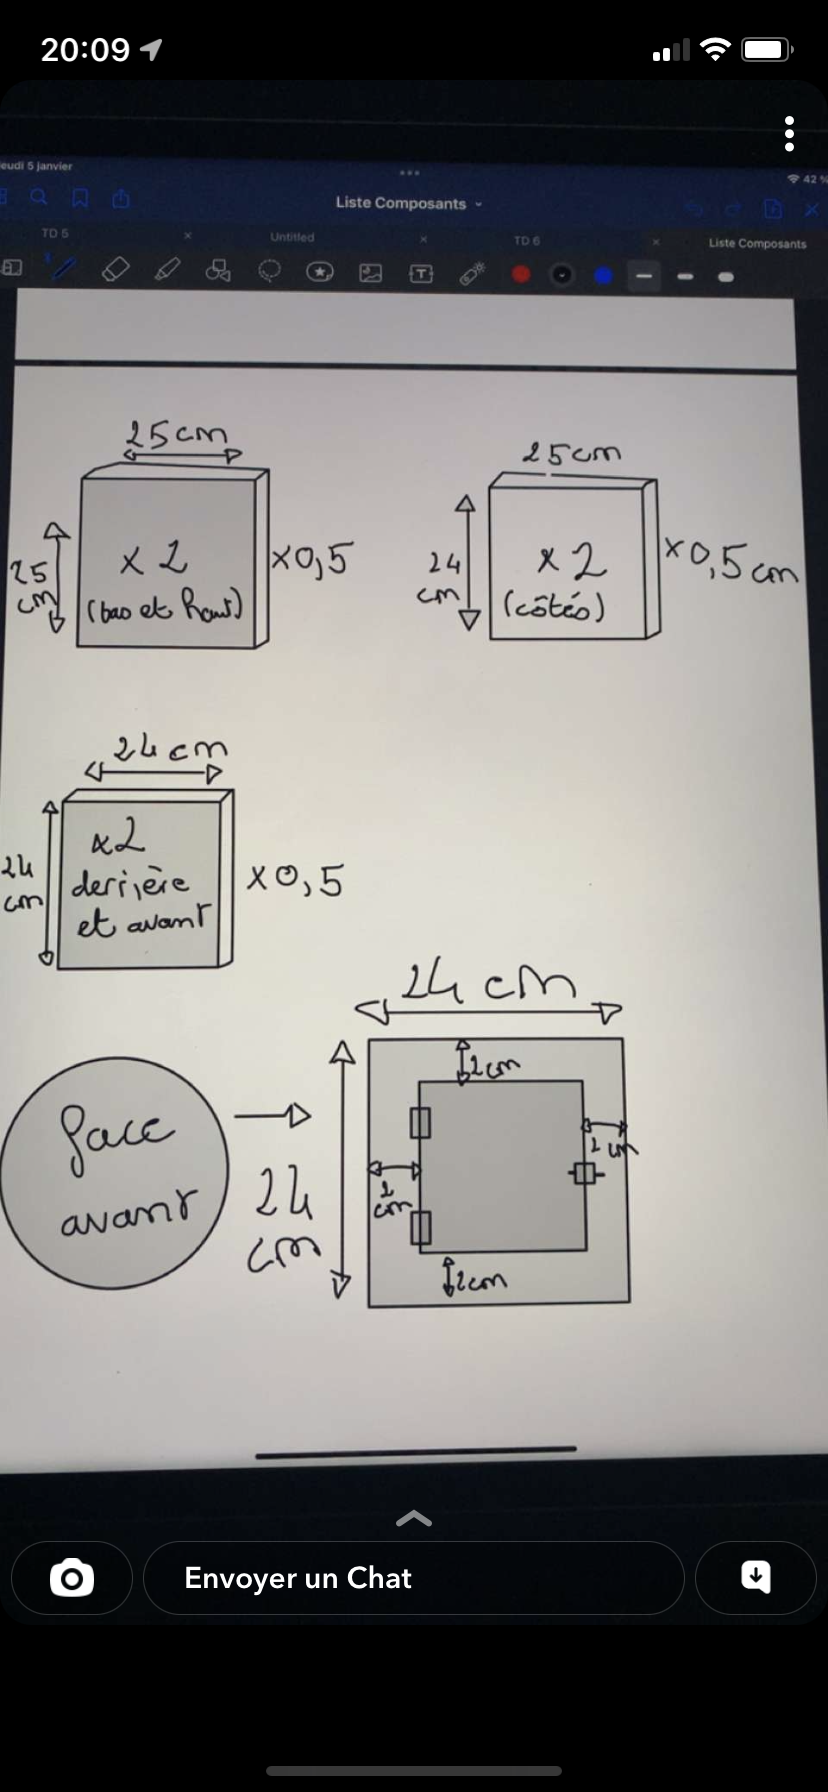 20:09
eudi 5 janvier
42 %
Liste Composants
TD 5
Untitled
TD 6
Liste Composants
25cm
25 cm
x 2
(bas et haut)
x0,5
25cm
24 cm
x 2
(côtés)
x0,5 cm
24 cm
24 cm
x2
derrière
et avant
x0,5
24 cm
24
cm
face
avant
2cm
2 cm
2
cm
2cm
Envoyer un Chat